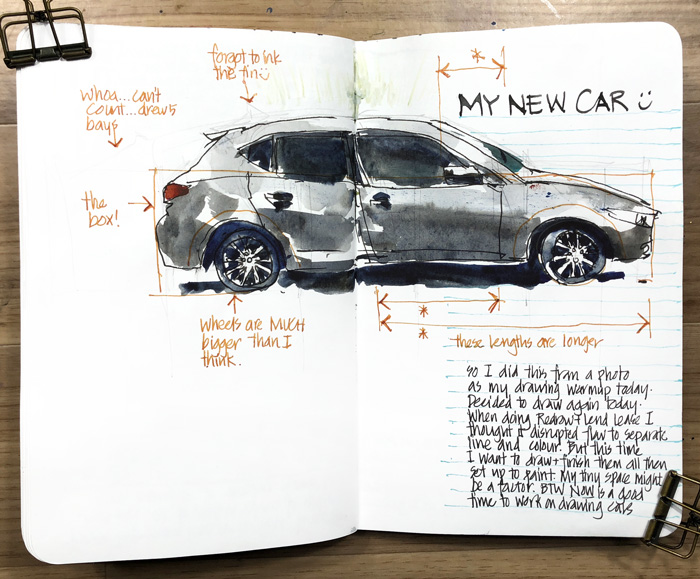 forgot to ink
the fin
whoa...can't
count...drew 5
bays
*
MY NEW CAR
the
box!
wheels are MUCH
bigger than I
think.
*
*
these lengths are longer
so I did this from a photo
as my drawing warmup today.
Decided to draw again today.
When doing Redraw+Lend Lease I
thought it disrupted flow to separate
line and colour. But this time
I want to draw+finish them all then
set up to paint. My tiny space might
be a factor. BTW Now is a good
time to work on drawing cars